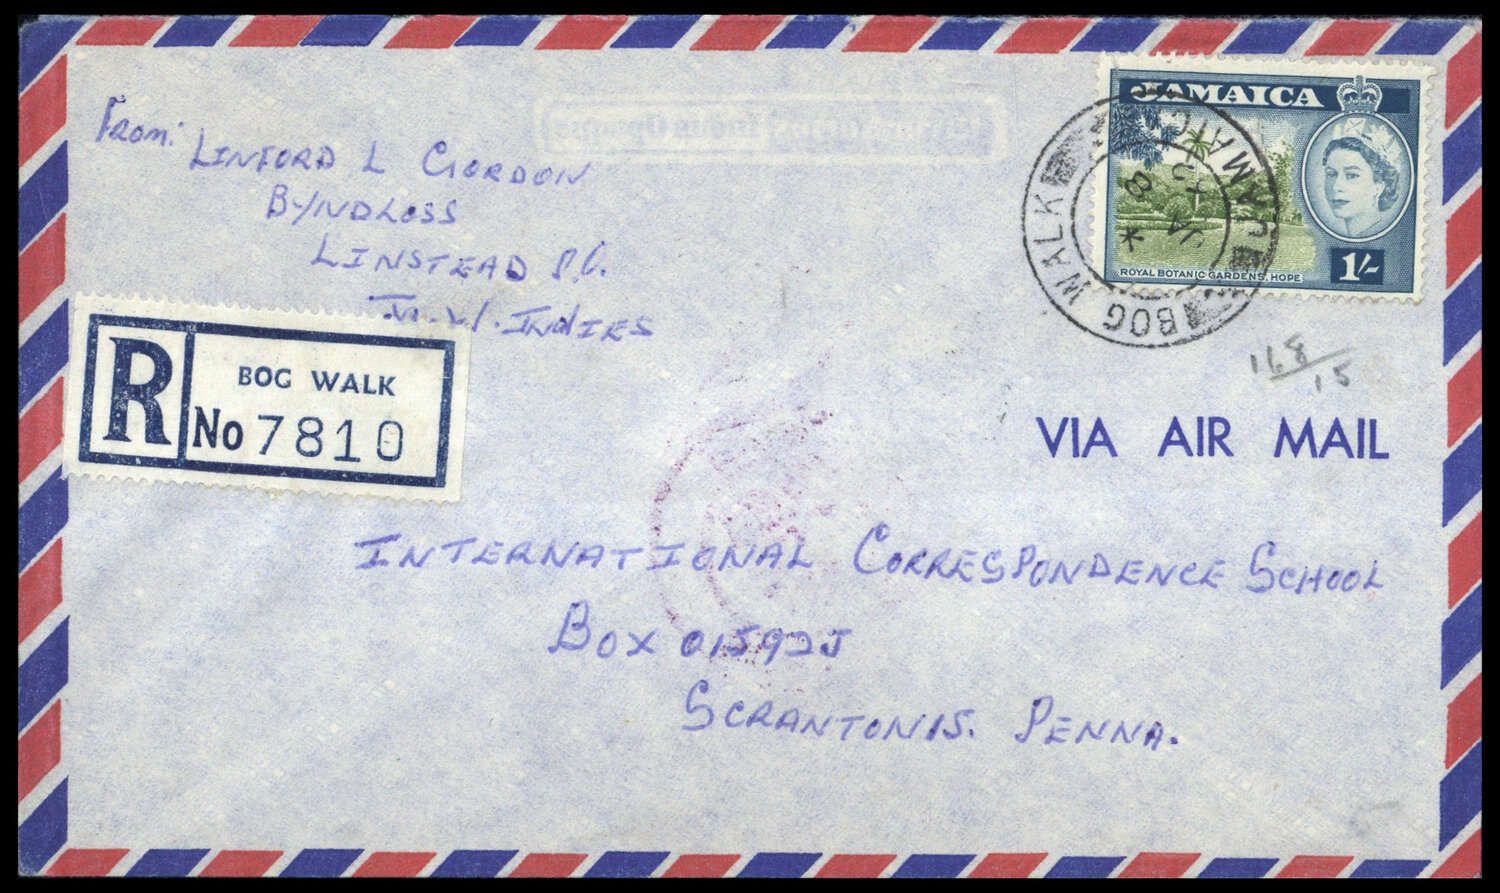 From:
LINFORD L GORDON
BYNDLOSS
LINSTEAD P.O.
J. W. INDIES
R
BOG WALK
No 7810
JAMAICA
ROYAL BOTANIC GARDENS, HOPE
1/-
BOG WALK
JAMAICA
168/15
VIA AIR MAIL
INTERNATIONAL CORRESPONDENCE SCHOOL
BOX 01592J
SCRANTON 15. PENNA.